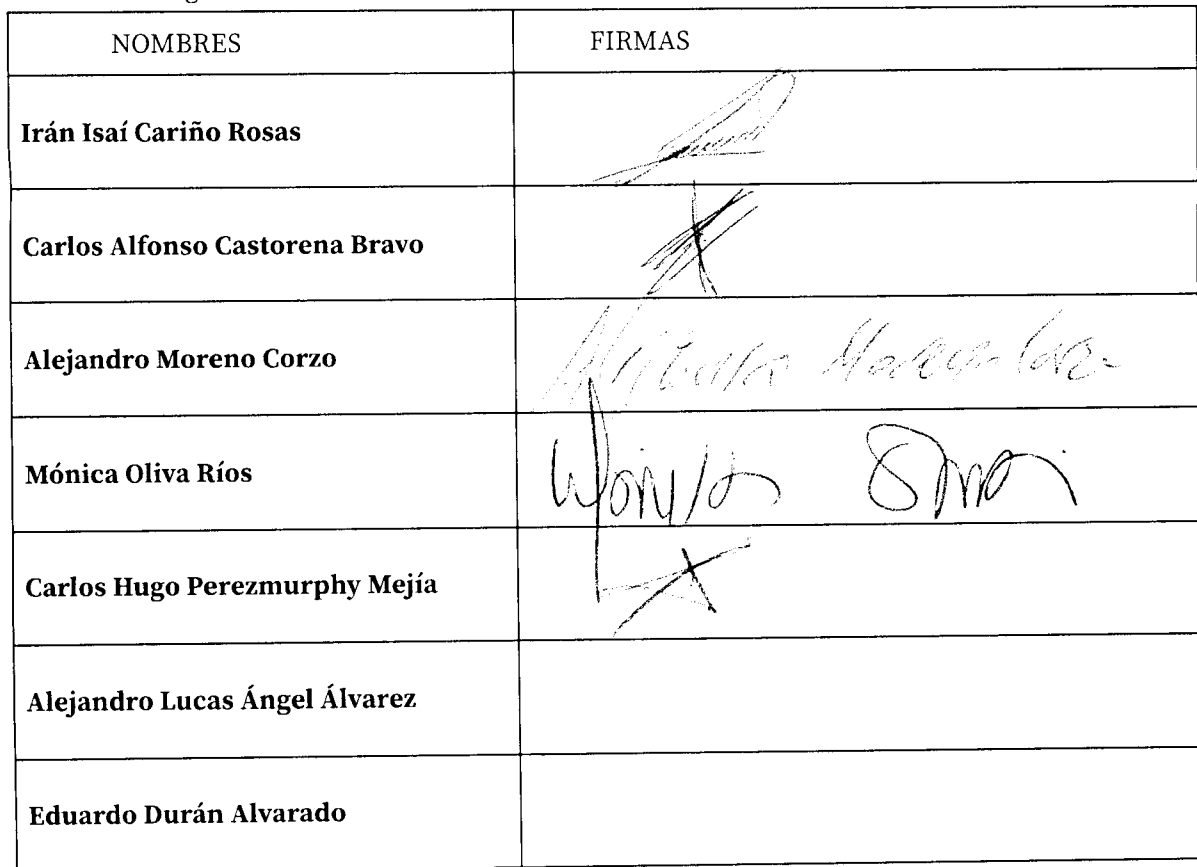 NOMBRES FIRMAS
Irán Isaí Cariño Rosas
Carlos Alfonso Castorena Bravo
Alejandro Moreno Corzo
Mónica Oliva Ríos
Carlos Hugo Perezmurphy Mejía
Alejandro Lucas Ángel Álvarez
Eduardo Durán Alvarado